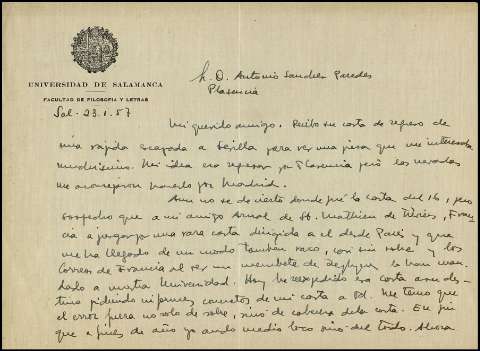 UNIVERSIDAD DE SALAMANCA
FACULTAD DE FILOSOFIA Y LETRAS
Sr. D. Antonio Sanchez Paredes
Plasencia
Sal - 23.1.57
Mi querido amigo. Recibo su carta de regreso de
una rapida escapada a Sevilla para ver una pieza que me interesaba
muchisimo. Mi idea era regresar por Plasencia pero las nevadas
me aconsejaron hacerlo por Madrid.
Aun no se de cierto donde fué la carta del 16, pero
sospecho que a mi amigo Arnal de St. Mathieu de Fran-
cia a una carta dirigida a el desde Paris y que
me ha llegado de un modo tambien raro, casi sin sobre y los
Correos de Francia al ver un membrete de la han man-
dado a nuestra Universidad. Hoy he reexpedido esa carta a su des-
tino pidiendo informes de mi carta a Vd. Me temo que
el error fuera no solo de sobre, sino de cabeza de la carta. En fin
que a fines de año yo ando medio loco sino del todo. Ahora